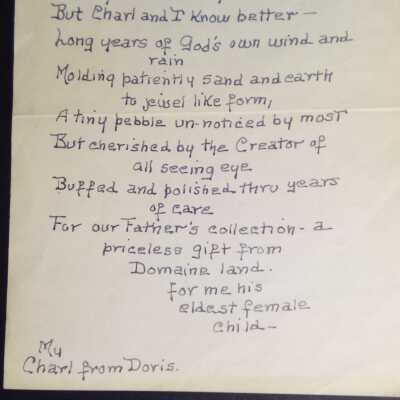 But Charl and I know better -
Long years of God's own wind and
rain
Molding patiently sand and earth
to jewel like form,
A tiny pebble un-noticed by most
But cherished by the Creator of
all seeing eye
Buffed and polished thru years
of care
For our Father's collection - a
priceless gift from
Domaine land.
for me his
eldest female
child -
My
Charl from Doris.